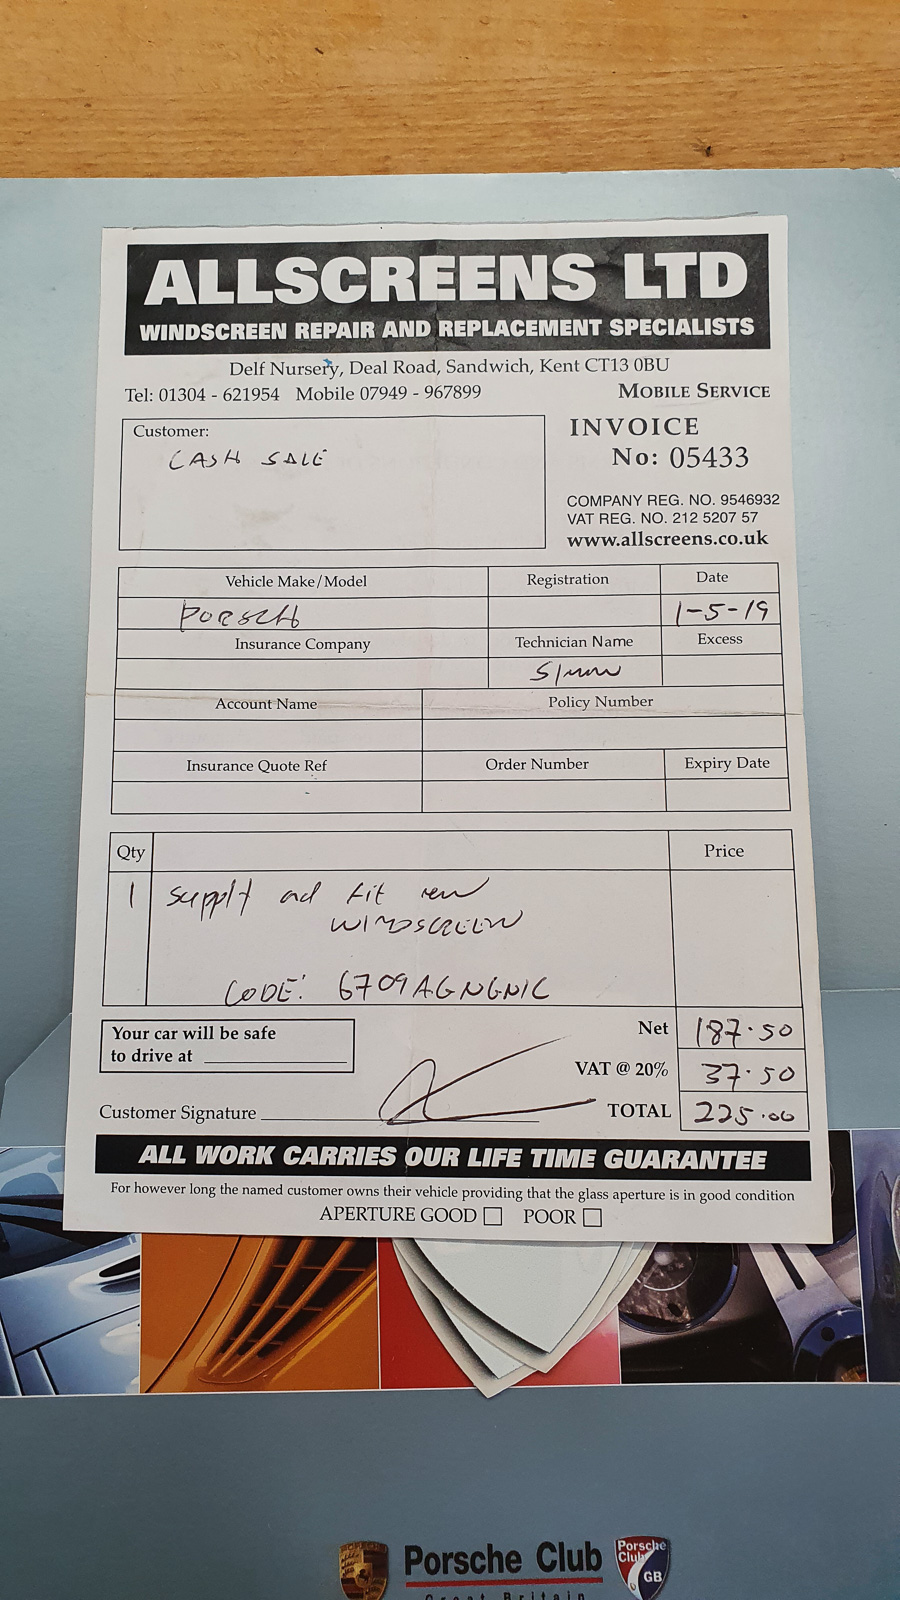 ALLSCREENS LTD
WINDSCREEN REPAIR AND REPLACEMENT SPECIALISTS
Delf Nursery, Deal Road, Sandwich, Kent CT13 0BU
Tel: 01304 - 621954 Mobile 07949 - 967899 MOBILE SERVICE
Customer:
CASH SALE
INVOICE
No: 05433
COMPANY REG. NO. 9546932
VAT REG. NO. 212 5207 57
www.allscreens.co.uk
Vehicle Make/Model Registration Date
PORSCH 1-5-19
Insurance Company Technician Name Excess
Simon
Account Name Policy Number
Insurance Quote Ref Order Number Expiry Date
Qty Price
1 Supply and fit new
WINDSCREEN
CODE: 6709AGNGNIC
Your car will be safe
to drive at
Net 187.50
VAT @ 20% 37.50
Customer Signature TOTAL 225.00
ALL WORK CARRIES OUR LIFE TIME GUARANTEE
For however long the named customer owns their vehicle providing that the glass aperture is in good condition
APERTURE GOOD POOR
Porsche Club
Porsche Club GB
Great Britain